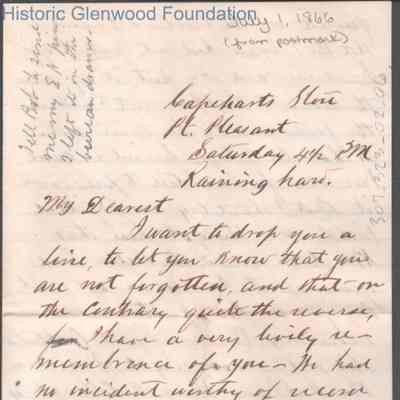 Historic Glenwood Foundation
July 1, 1866
(from postmark)
Tell Rob to
I left it on the
bureau drawer
Capeharts Store
Pt. Pleasant
Saturday 4½ PM
Raining hard.
My Dearest
I want to drop you a
line, to let you know that you
are not forgotten, and that on
the contrary quite the reverse,
I have a very lively re-
membrence of you - We had
no incident worthy of record